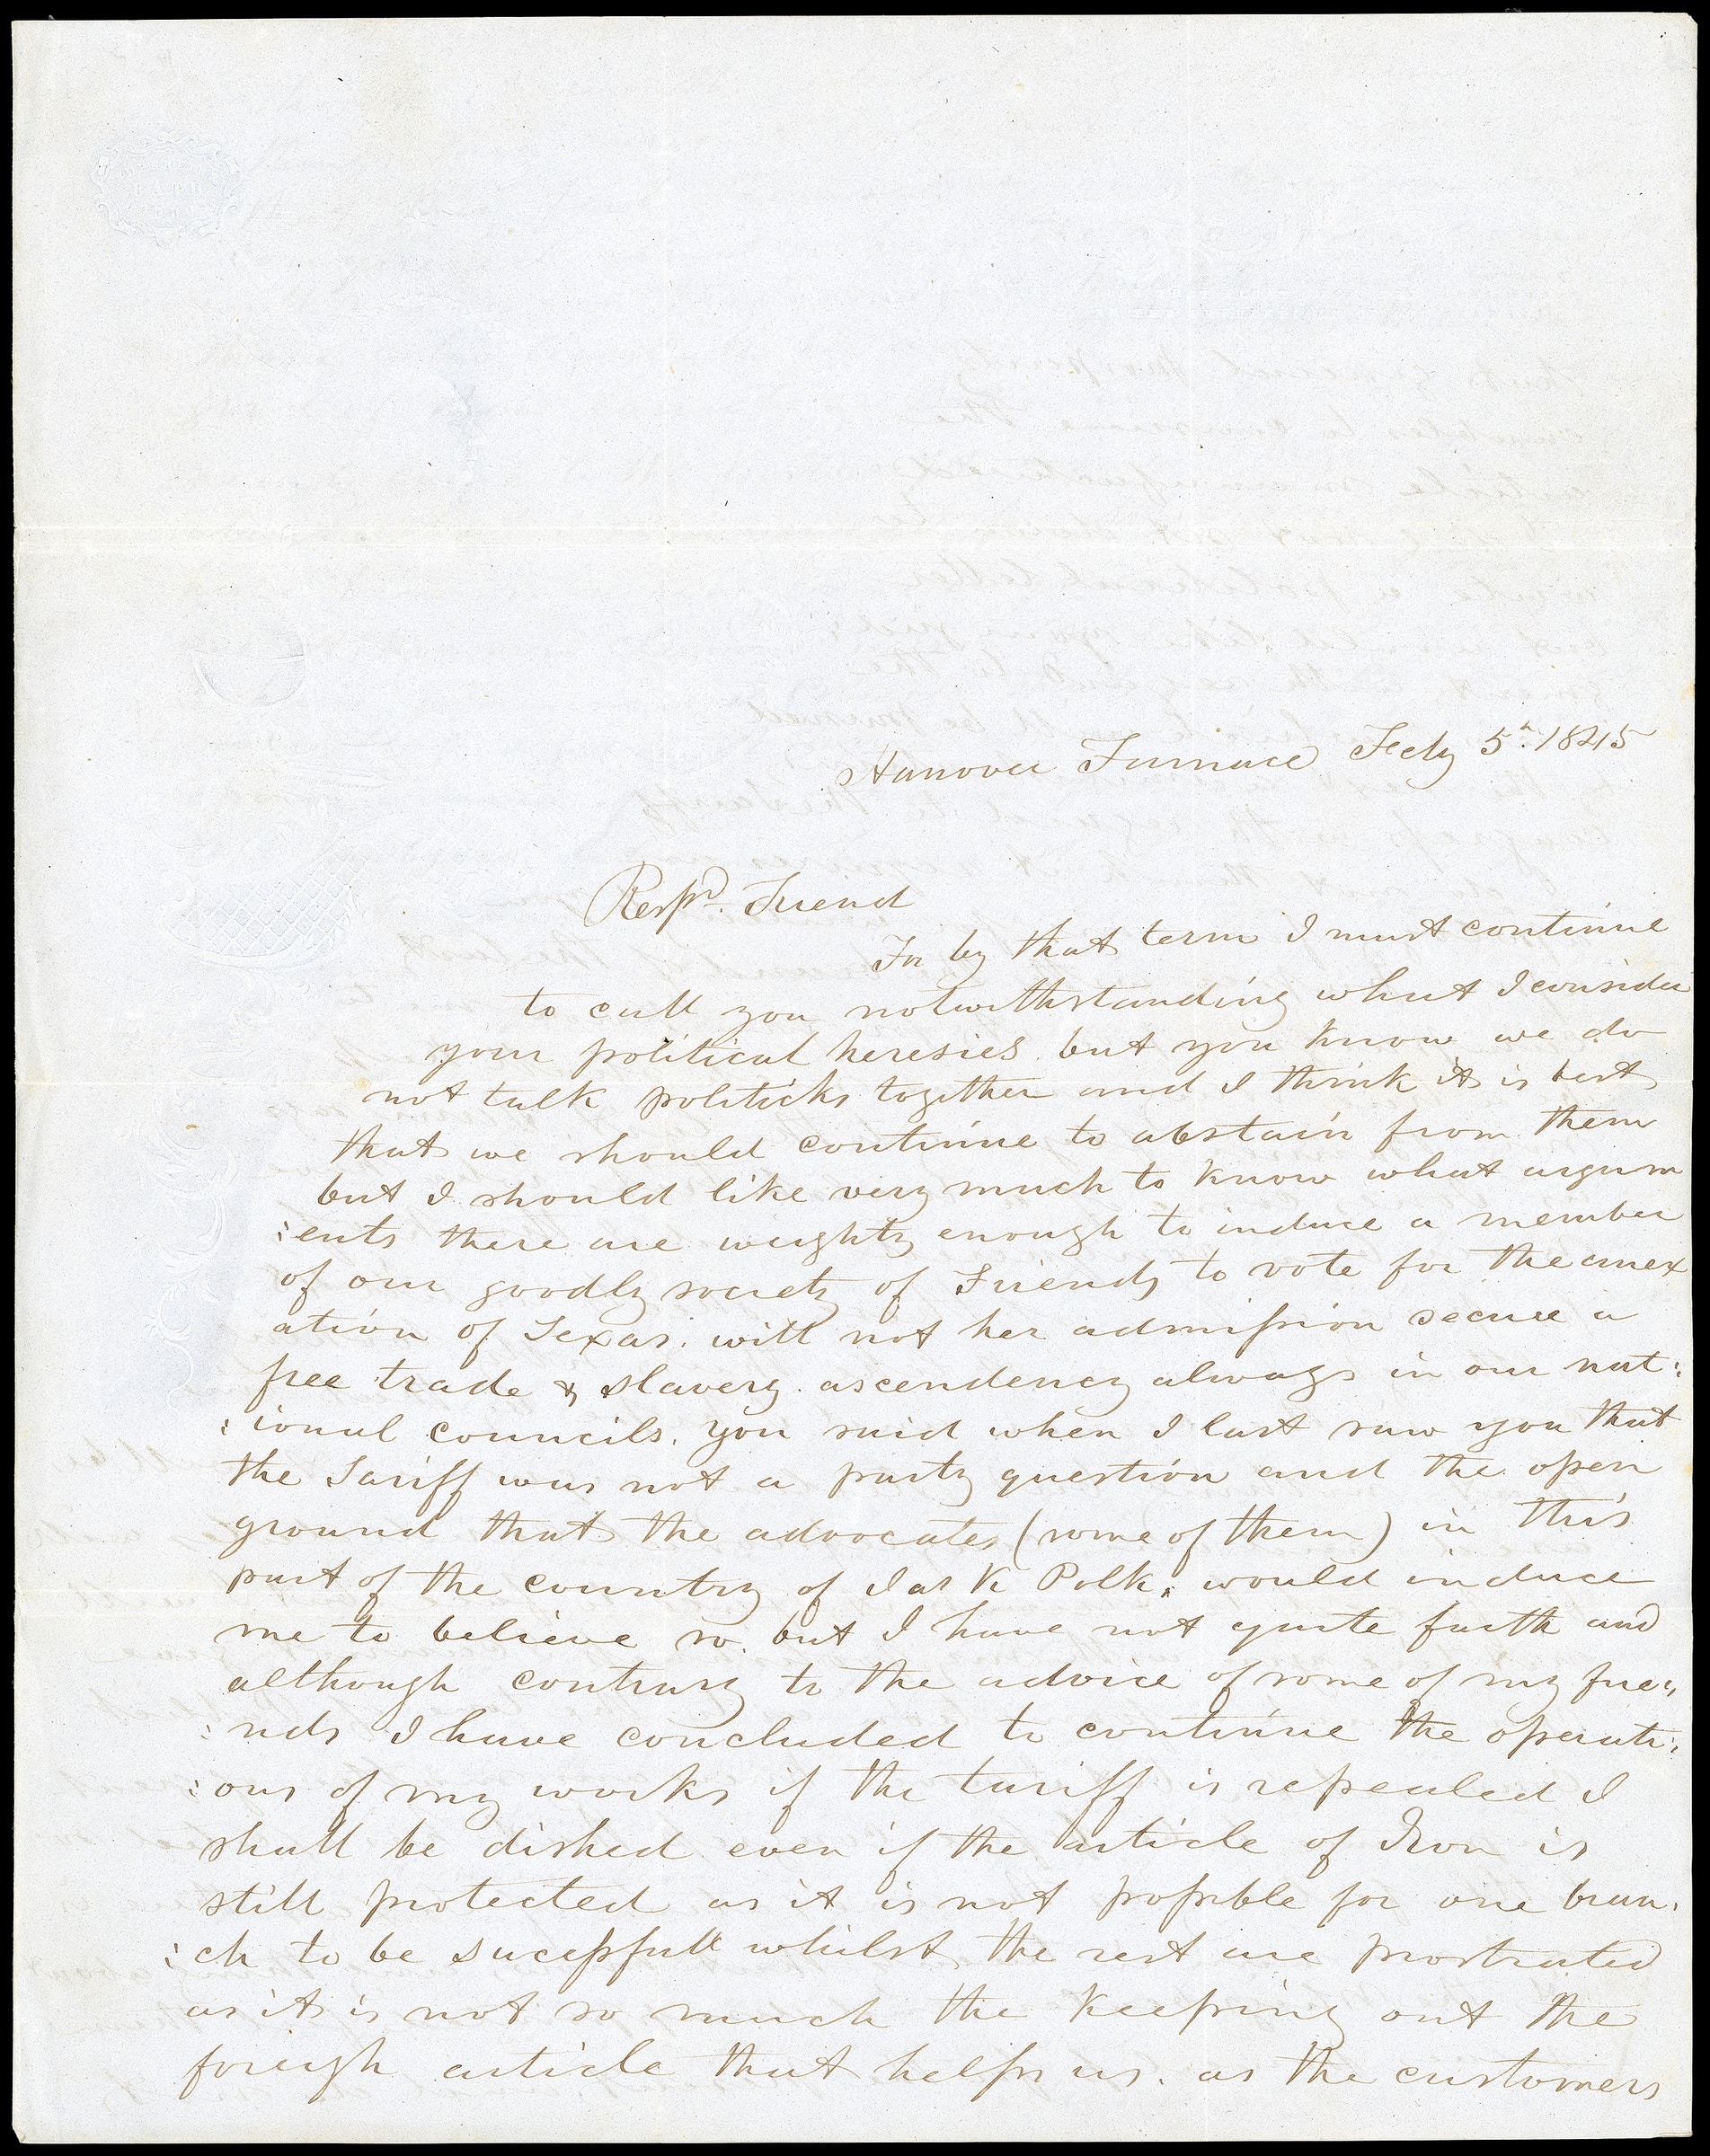 Hanover Furnace Feby 5th. 1845
Respd. Friend
For by that term I must continue
to call you notwithstanding what I consider
your political heresies. but you know we do
not talk politicks together and I think it is best
that we should continue to abstain from them
but I should like very much to know what argum
:ents there are weighty enough to induce a member
of our goodly society of Friends to vote for the anex
ation of Texas. will not her admission secure a
free trade & slavery ascendency always in our nat:
:ional councils. you said when I last saw you that
the Tariff was not a party question and the open
ground that the advocates (some of them) in this
part of the country of Jas K Polk. would induce
me to believe so. but I have not quite faith and
although contrary to the advice of some of my frie:
:nds I have concluded to continue the operati:
:ons of my works if the tariff is repealed I
shall be dished even if the article of Iron is
still protected as it is not possible for one bran:
:ch to be sucessfull whilst the rest are prostrated
as it is not so much the keeping out the
foreigh article that helps us. as the customers
BATH